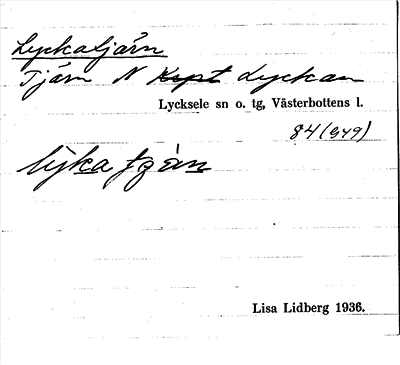 Lyckatjärn
Tjärn N Krpt Lyckan
Lycksele sn o. tg, Västerbottens l.
84 (e49)
lyka tjàn
Lisa Lidberg 1936.